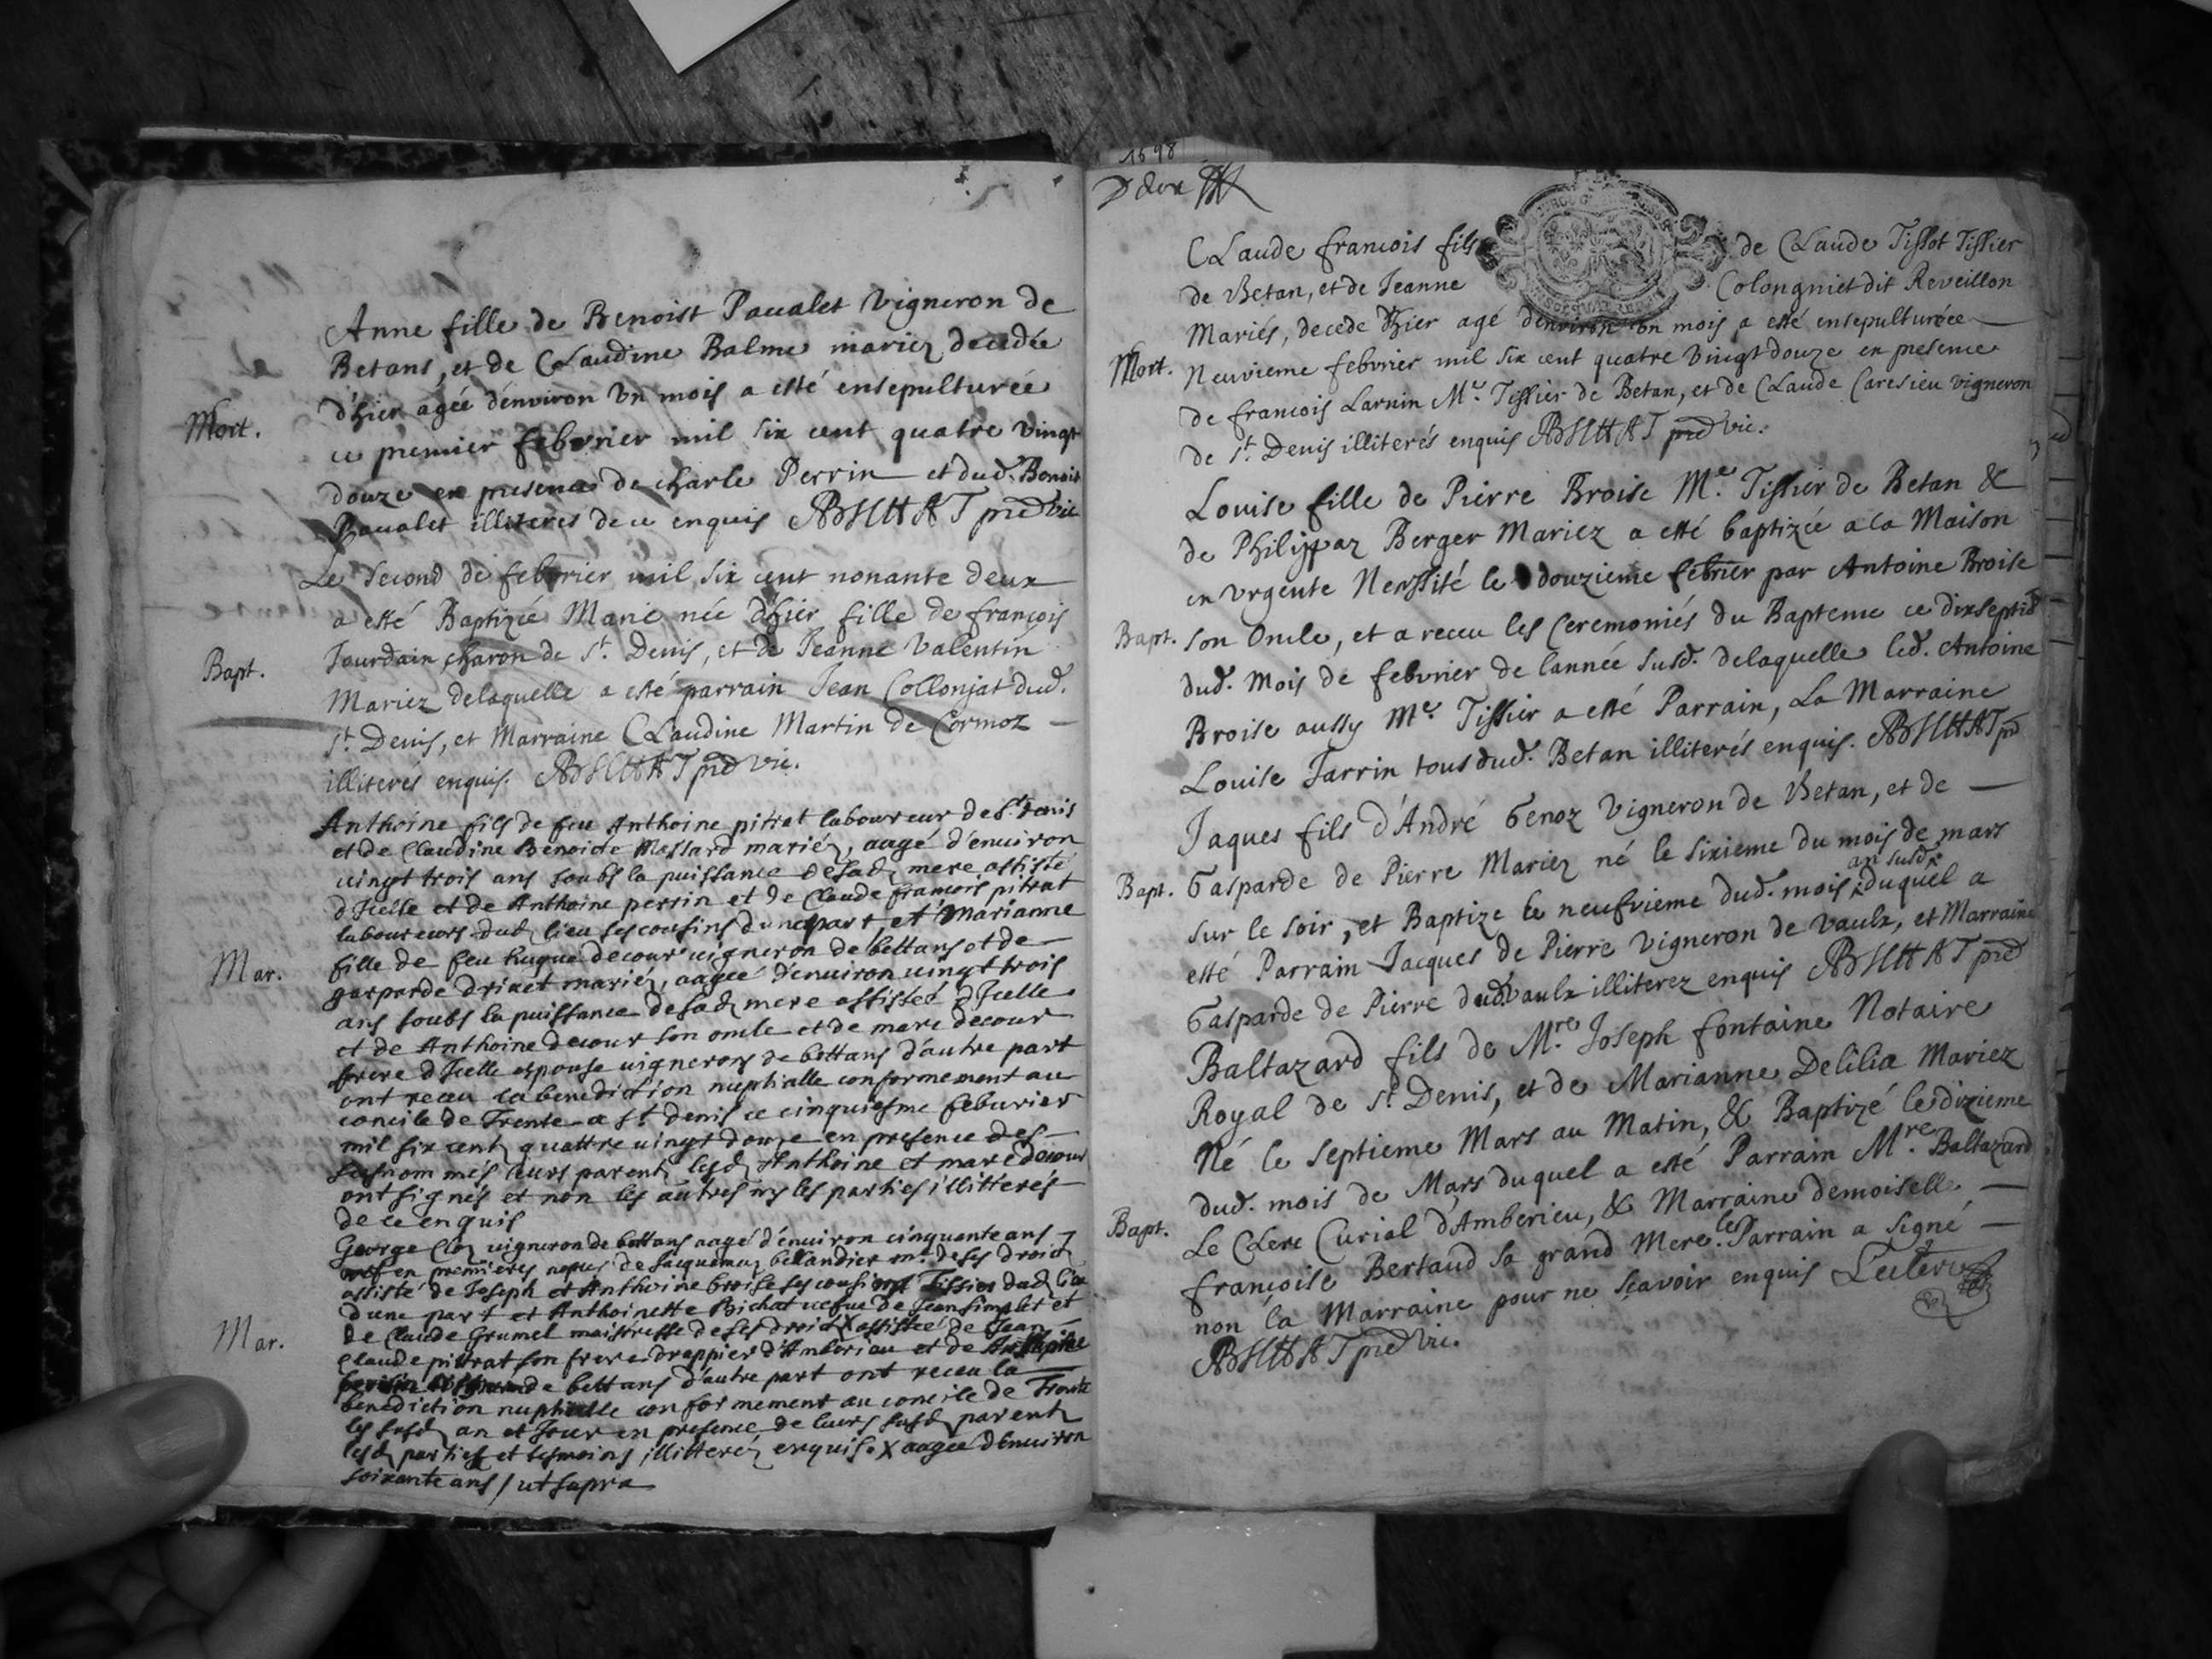 Anne fille de Benoist Paualet Vigneron de
Betans, et de Claudine Balme mariez decedée
d'hier agée d'environ un mois a esté ensepulturée
Mort.
ce premier febvrier mil six cent quatre Vingt
douze en presence de charle Perrin et dud. Benoit
Paualet illiteres de ce enquis
Le Second de febvrier mil six cent nonante deux
a esté Baptizée Marie née d'hier fille de françois
Jourdain charon de St. Denis, et de Jeanne Valentin
Bapt.
Mariez delaquelle a esté parrain Jean Collonjat dud.
St. Denis, et Marraine Claudine Martin de Cormoz
illiterés enquis. vic.
Anthoine fils de feu Anthoine pitrat laboureur de St. denis
et de Claudine Benoite Massard mariéz, aagé d'enuiron
uingt trois ans soubs la puissance de sad. mere assisté
d'Icelle et de Anthoine perrin et de Claude françois pitrat
laboureurs dud. lieu ses cousins d'une part, et Marianne
Mar.
fille de feu hugue decour uigneron de bettans et de
gasparde driuet mariéz, aagée d'enuiron uingt trois
ans soubs la puissance de sad. mere assistée d'Icelle
et de Anthoine decour son oncle et de marc decour
frere d'Icelle espouse uignerons de bettans d'autre part
ont receu la benediction nuptialle conformement au
concile de Trente a St. denis ce cinquiesme feburier
mil six cent quattre uingt douze en presence des
susnommés leurs parents lesd. Anthoine et marc decour
ont signés et non les autres ny les parties illitterés
de ce enquis
George Cloz uigneron de bettans aagé d'enuiron cinquante ans
assisté de Joseph et Anthoine broise ses cousins Tissier dud. lieu
d'une part et Anthoinette Bichat uefue de Jean simplet et
Mar.
de Claude Grumel maistresse de ses droits X assistée de Jean
Claude pittrat son frere drappier d'Amberieu et de
de bettans d'autre part ont receu la
benediction nuptialle conformement au concile de Trente
les susd. an et Jour en presence de leurs susd. parents
lesd. parties et tesmoins illitteréz enquis. X aagée d'enuiron
soixante ans / ut supra
1698
Claude francois fils de Claude Tissot Tissier
de Betan, et de Jeanne Colongniet dit Reveillon
Mariés, decede d'hier agé d'environ un mois a esté ensepulturée
Mort.
Neuvieme febvrier mil six cent quatre Vingt douze en presence
de francois Larnin Mr. Tissier de Betan, et de Claude Caresieu vigneron
de St. Denis illiterés enquis vic.
Louise fille de Pierre Broise Me. Tissier de Betan &
de Philippaz Berger Mariez a esté baptizée a la Maison
en Urgente Necessité le douzieme febrier par Antoine Broise
Bapt.
son Oncle, et a receu les Ceremoniés du Bapteme ce dixseptie
dud. Mois de febvrier de l'année susd. delaquelle led. Antoine
Broise aussy Me. Tissier a esté Parrain, La Marraine
Louise Jarrin tous dud. Betan illiterés enquis.
Jaques fils d'André Genoz Vigneron de Betan, et de
Bapt.
Gasparde de Pierre Mariez né le sixieme du mois de mars
an susd.
sur le soir, et Baptize le neufvieme dud. mois duquel a
esté Parrain Jacques de Pierre Vigneron de Vaulx, et Marraine
Gasparde de Pierre dud. Vaulx illiterez enquis
Baltazard fils de Mre. Joseph fontaine Notaire
Royal de St. Denis, et de Marianne Delilia Mariez
Né le septieme Mars au Matin, & Baptizé le dixieme
dud. mois de Mars duquel a esté Parrain Mre. Baltazard
Bapt.
Le Clerc Curial d'Amberieu, & Marraine demoiselle
françoise Bertaud sa grand Mere. le Parrain a signé
non la Marraine pour ne sçavoir enquis Leclerc
vic.